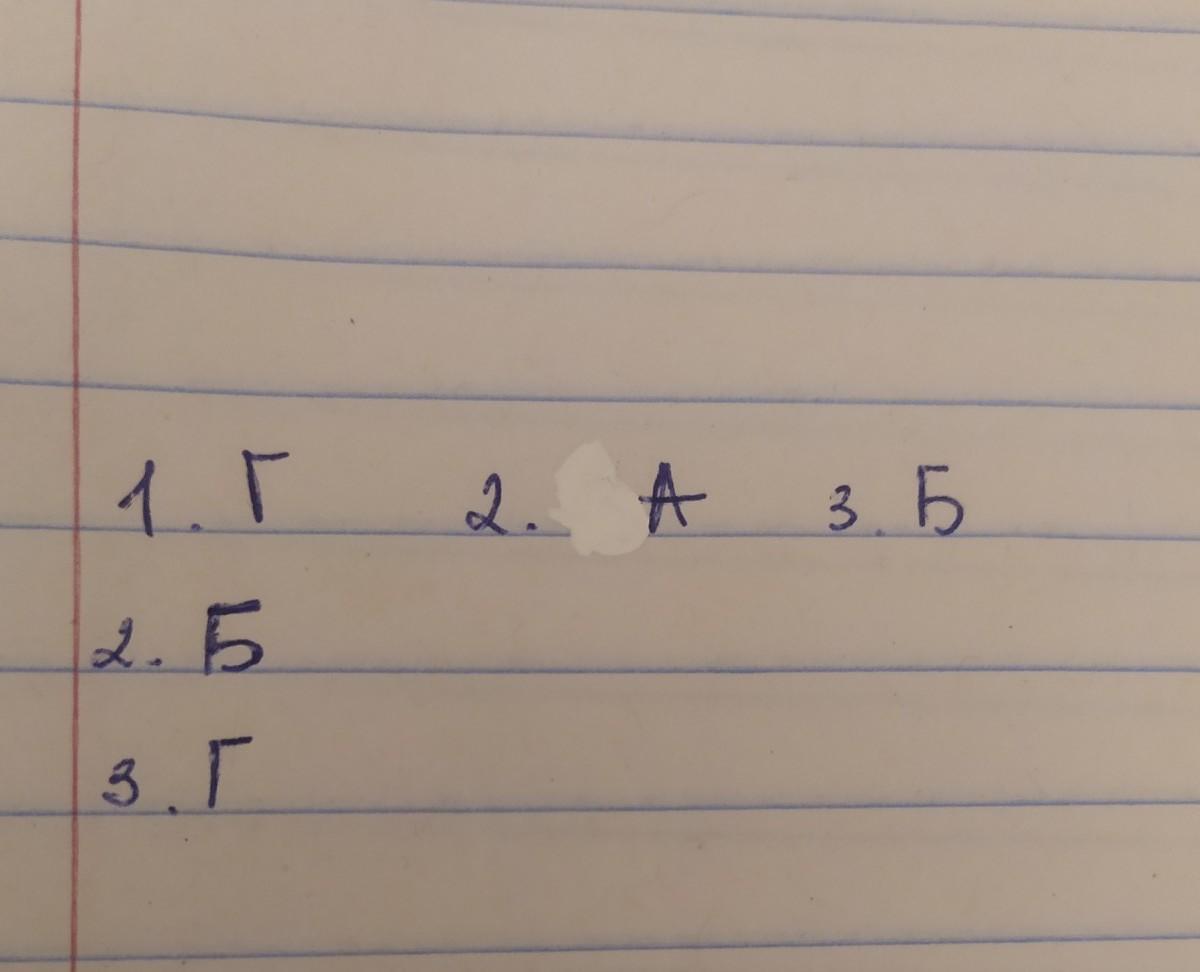 1. Г 2. А 3. Б
2. Б
3. Г